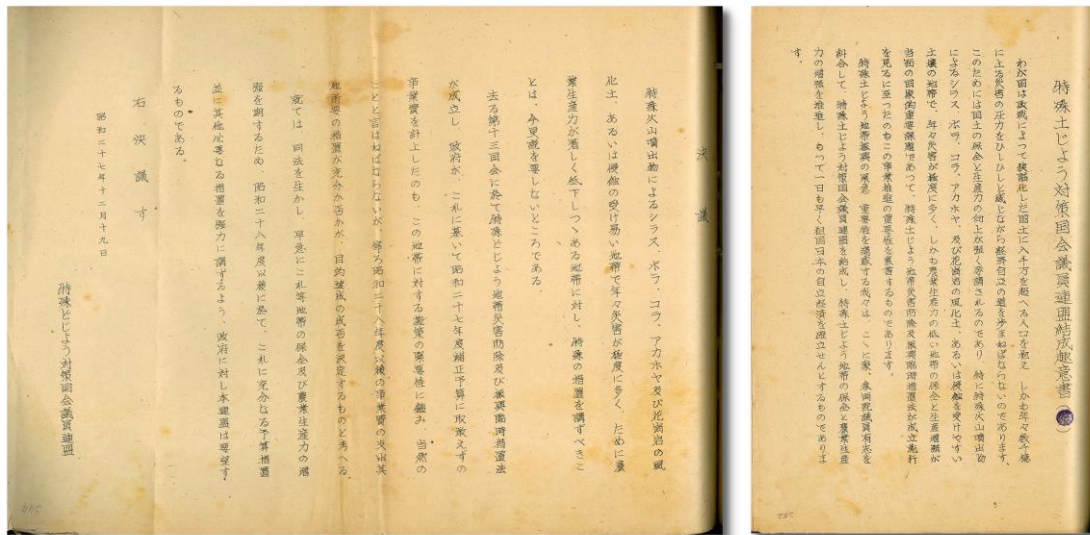 決議
特殊火山噴出物によるシラス、ボラ、コラ、アカホヤ及び花崗岩の風
化土、あるいは侵蝕の受け易い地帯で年々災害が極度に多く、ために農
業生産力が著しく低下しつゝある地帯に対し、特殊の措置を講ずべきこ
とは、今更説を要しないところである。
去る第十三回会に於て特殊とじよう地帯災害防除及び振興臨時措置法
が成立し、政府が、これに基いて昭和二十七年度補正予算に取敢えずの
事業費を計上したのも、この地帯に対する施策の重要性に鑑み、当然の
ことと言はねばならないが、寧ろ昭和二十八年度以後の事業費の支出其
他所要の措置が充分か否かが、目的達成の成否を決定するものと考へる
就ては、同法を生かし、早急にこれ等地帯の保全及び農業生産力の増
強を期するため、昭和二十八年度以後に於て、これに充分なる予算措置
並に其他必要なる措置を強力に講ずるよう、政府に対し本連盟は要望す
るものである。
右決議す
昭和二十七年十二月十九日
特殊とじよう対策国会議員連盟
特殊土じよう対策国会議員連盟結成趣意書
わが国は敗戦によつて狭隘化した国土に八千万を超へる人口を抱え しかも年々数千億
に上る災害の圧力をひしひしと感じながら経済自立の道を歩まねばならないのであります。
このためには国土の保全と生産力の向上が強く要請されるのであり、特に特殊火山噴出物
によるシラス、ボラ、コラ、アカホヤ、及び花崗岩の風化土、あるいは侵蝕を受けやすい
土壌の地帯で、年々災害が極度に多く、しかも農業生産力の低い地帯の保全と生産増強が
当面の国家的重要課題であつて、特殊土じよう地帯災害防除及振興臨時措置法が成立施行
を見るに至つたのもこの事業推進の重要性を裏書するものであります。
特殊土じよう地帯振興の緊急 重要性を痛感する我々は、こゝに衆、参両院議員有志を
糾合して、特殊土じよう対策国会議員連盟を結成し、特殊土じよう地帯の保全と農業生産
力の増強を推進し、もつて一日も早く祖国日本の自立経済を確立せんとするものでありま
す。